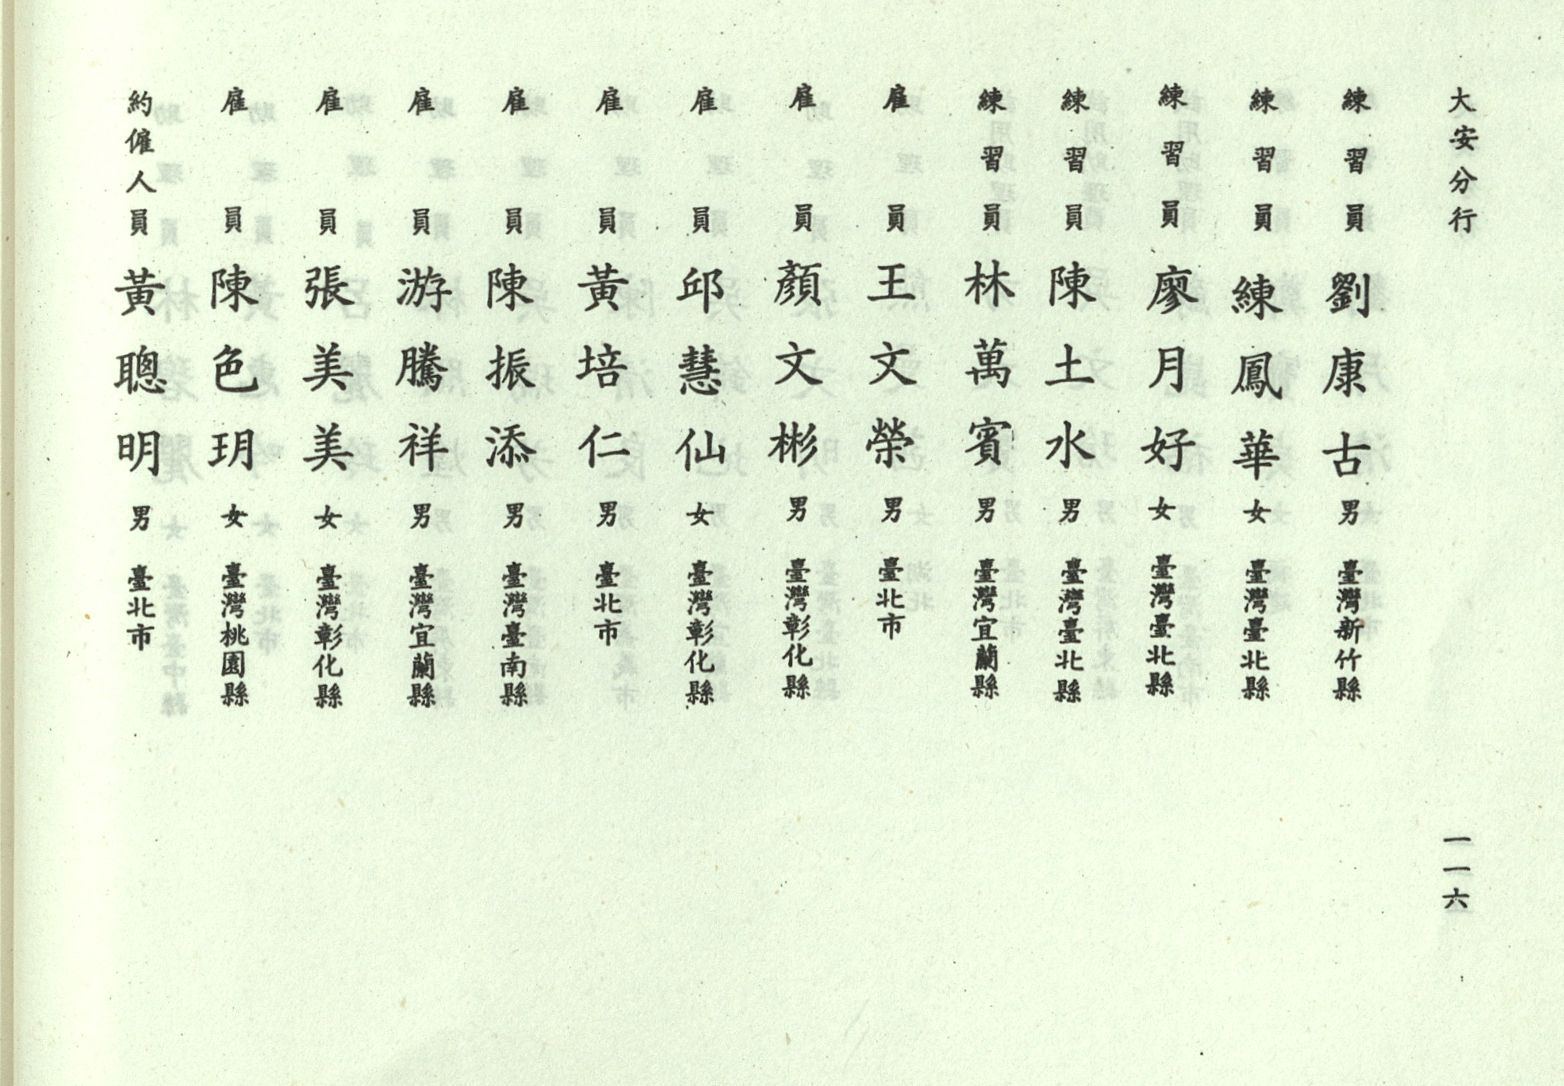 大安分行
一一六
練習員 劉康古 男 臺灣新竹縣
練習員 練鳳華 女 臺灣臺北縣
練習員 廖月好 女 臺灣臺北縣
練習員 陳土水 男 臺灣臺北縣
練習員 林萬賓 男 臺灣宜蘭縣
雇員 王文榮 男 臺北市
雇員 顏文彬 男 臺灣彰化縣
雇員 邱慧仙 女 臺灣彰化縣
雇員 黃培仁 男 臺北市
雇員 陳振添 男 臺灣臺南縣
雇員 游騰祥 男 臺灣宜蘭縣
雇員 張美美 女 臺灣彰化縣
雇員 陳色玥 女 臺灣桃園縣
約僱人員 黃聰明 男 臺北市